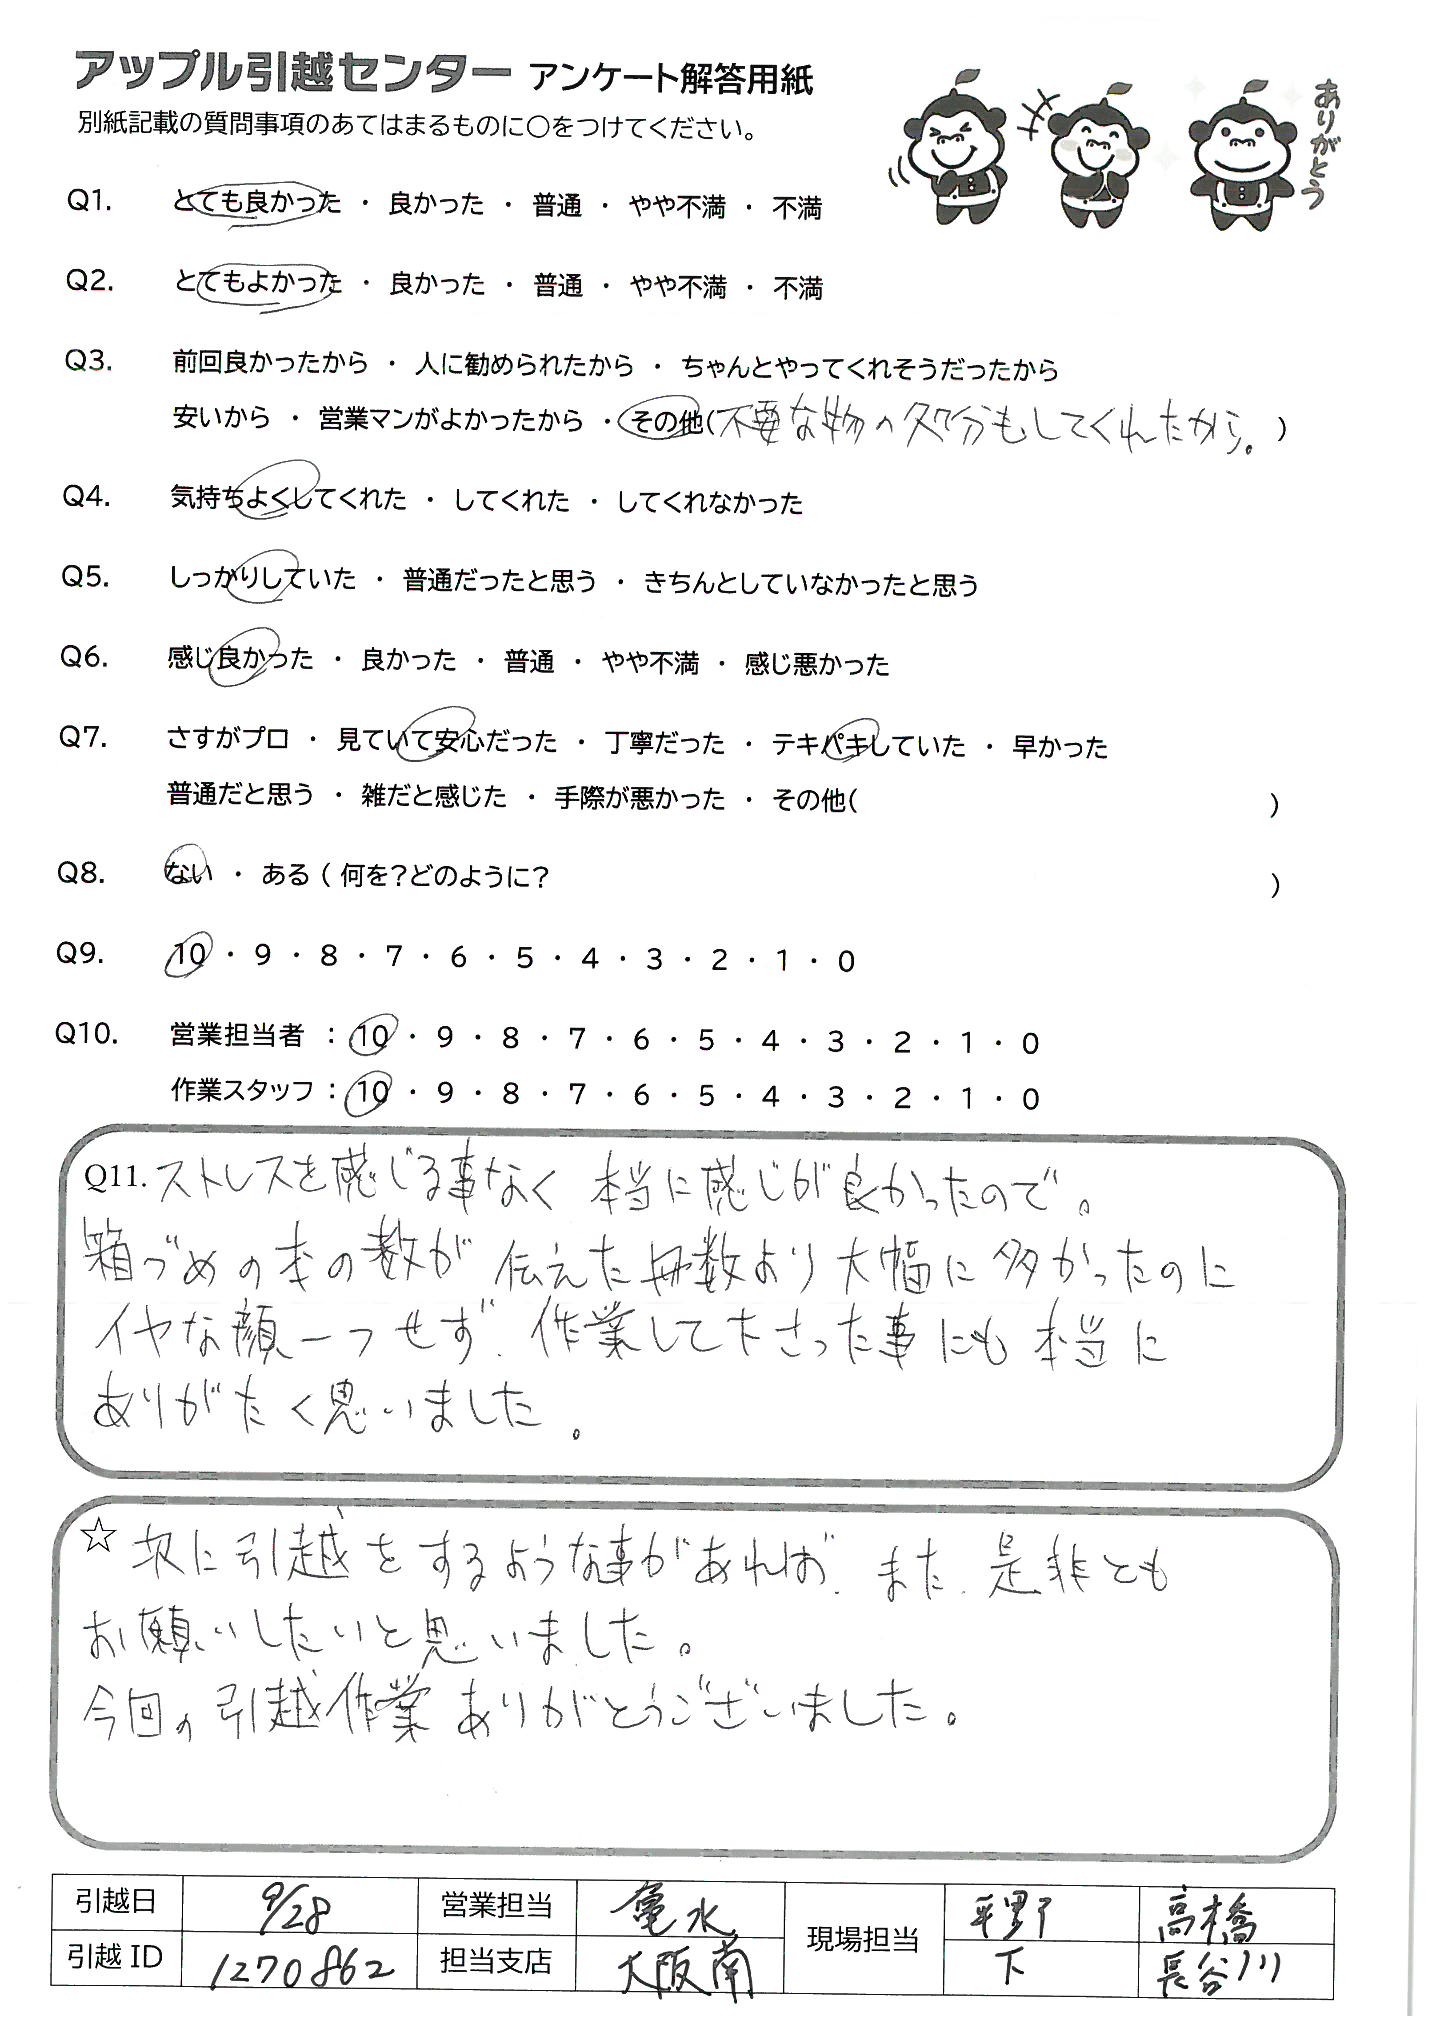 アップル引越センター アンケート解答用紙
別紙記載の質問事項のあてはまるものに○をつけてください。
ありがとう
Q1. とても良かった ・ 良かった ・ 普通 ・ やや不満 ・ 不満
Q2. とてもよかった ・ 良かった ・ 普通 ・ やや不満 ・ 不満
Q3. 前回良かったから ・ 人に勧められたから ・ ちゃんとやってくれそうだったから
安いから ・ 営業マンがよかったから ・ その他(不要な物の処分もしてくれたから。)
Q4. 気持ちよくしてくれた ・ してくれた ・ してくれなかった
Q5. しっかりしていた ・ 普通だったと思う ・ きちんとしていなかったと思う
Q6. 感じ良かった ・ 良かった ・ 普通 ・ やや不満 ・ 感じ悪かった
Q7. さすがプロ ・ 見ていて安心だった ・ 丁寧だった ・ テキパキしていた ・ 早かった
普通だと思う ・ 雑だと感じた ・ 手際が悪かった ・ その他( )
Q8. ない ・ ある ( 何を?どのように? )
Q9. 10 ・ 9 ・ 8 ・ 7 ・ 6 ・ 5 ・ 4 ・ 3 ・ 2 ・ 1 ・ 0
Q10. 営業担当者 : 10 ・ 9 ・ 8 ・ 7 ・ 6 ・ 5 ・ 4 ・ 3 ・ 2 ・ 1 ・ 0
作業スタッフ : 10 ・ 9 ・ 8 ・ 7 ・ 6 ・ 5 ・ 4 ・ 3 ・ 2 ・ 1 ・ 0
Q11. ストレスを感じる事なく 本当に感じが良かったので。
箱づめの本の数が 伝えた冊数より大幅に多かったのに
イヤな顔一つせず、作業して下さった事にも本当に
ありがたく思いました。
☆ 次に引越をするような事があれば、また、是非とも
お願いしたいと思いました。
今回の引越作業ありがとうございました。
引越日 9/28 営業担当 亀水 現場担当 平野 高橋
引越 ID 1270862 担当支店 大阪南 下 長谷川